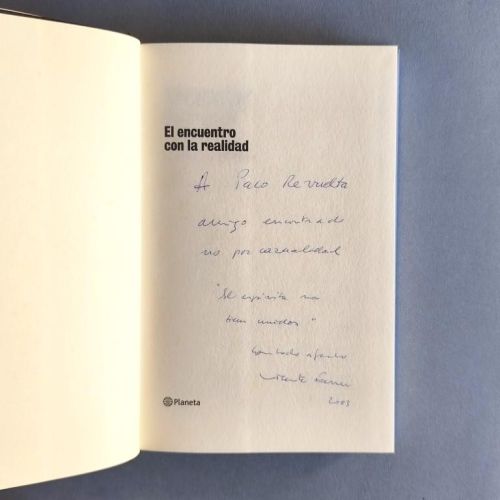 El encuentro
con la realidad
A Paco Revuelta
amigo encontrado
no por casualidad
"El espíritu nos
tiene unidos"
Con todo afecto
Vicente Ferrer
2003
Planeta